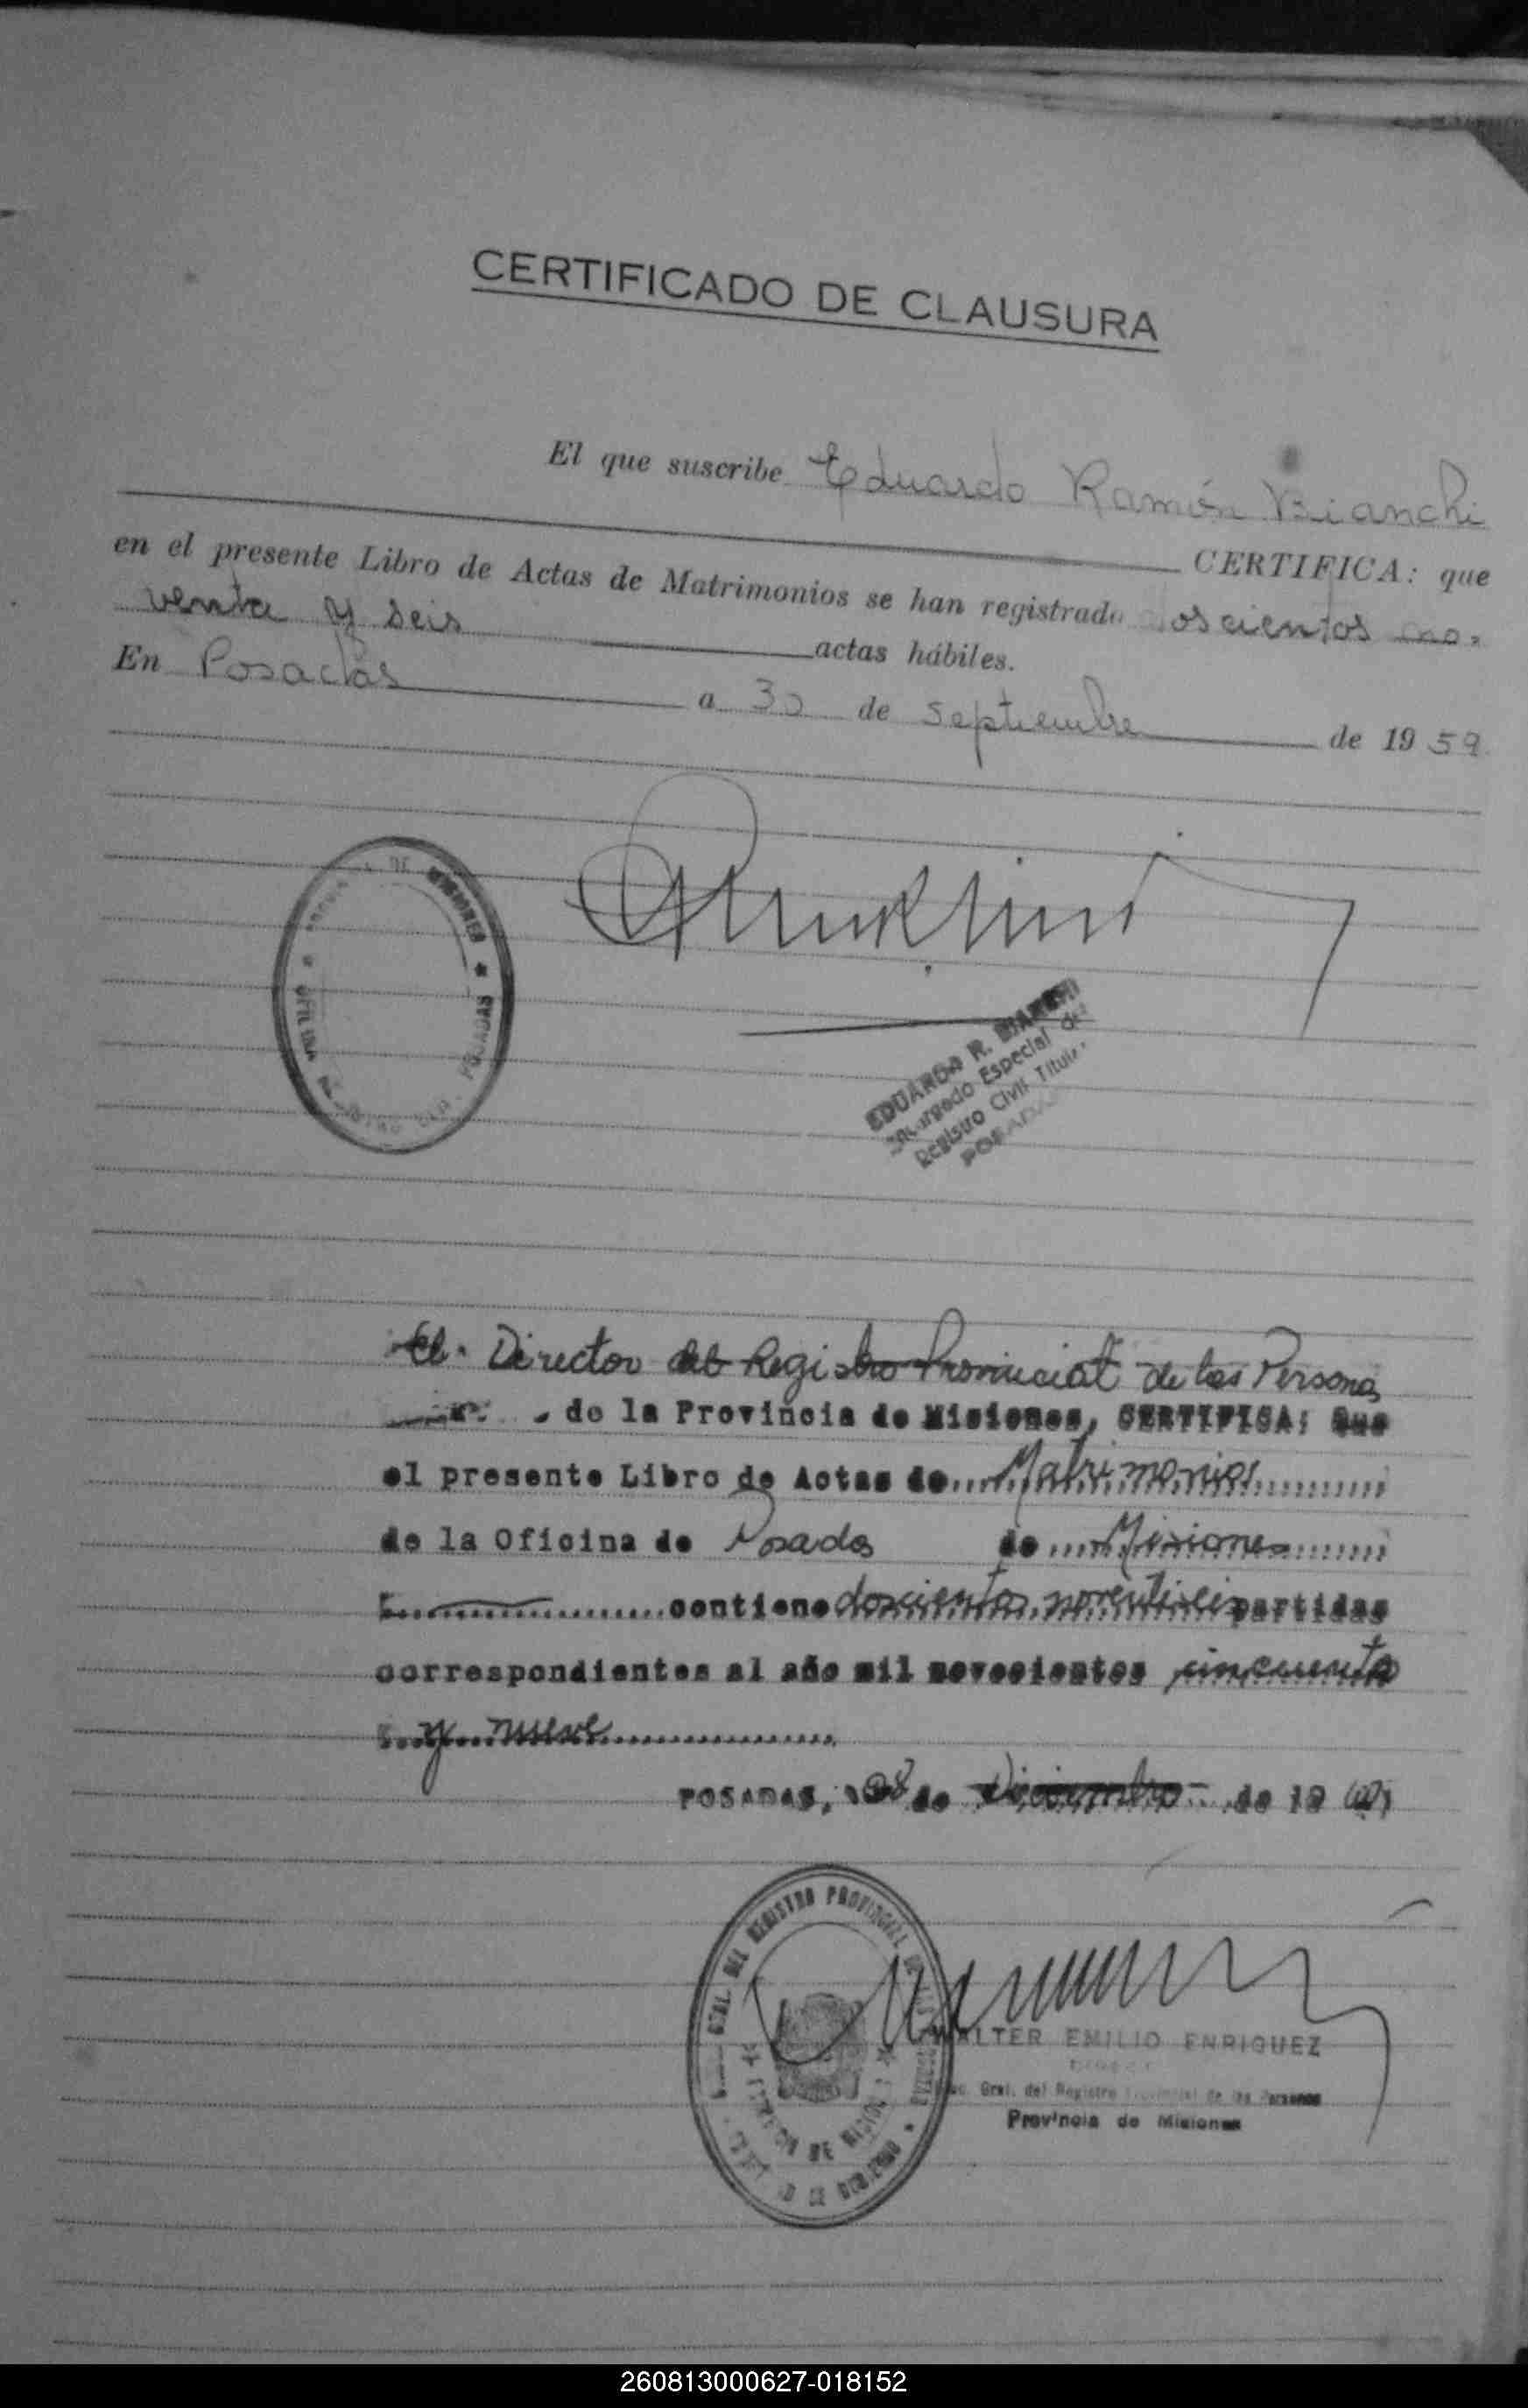 CERTIFICADO DE CLAUSURA
El que suscribe Eduardo Ramón Bianchi
CERTIFICA: que
en el presente Libro de Actas de Matrimonios se han registrado doscientos no-
venta y seis actas hábiles.
En Posadas a 30 de septiembre de 1959
DE MISIONES * POSADAS
OFICINA
EDUARDO R. BIANCHI
Encargado Especial del
Registro Civil Titular
POSADAS
El Director del Registro Provincial de las Personas
de la Provincia de Misiones, CERTIFICA: Que
el presente Libro de Actas de Matrimonios
de la Oficina de Posadas de Misiones
contiene doscientos noventiseis partidas
correspondientes al año mil novecientos cincuenta
y nueve
POSADAS, 28 de Diciembre de 19
GRAL. DEL REGISTRO PROVINCIAL DE LAS PERSONAS
DE GOBIERNO
WALTER EMILIO ENRIQUEZ
Gral. del Registro Provincial de las Personas
Provincia de Misiones
260813000627-018152